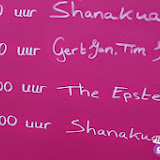 0 uur Shanakua
00 uur Gert Jan, Tim
00 uur The Epste
:00 uur Shanakua